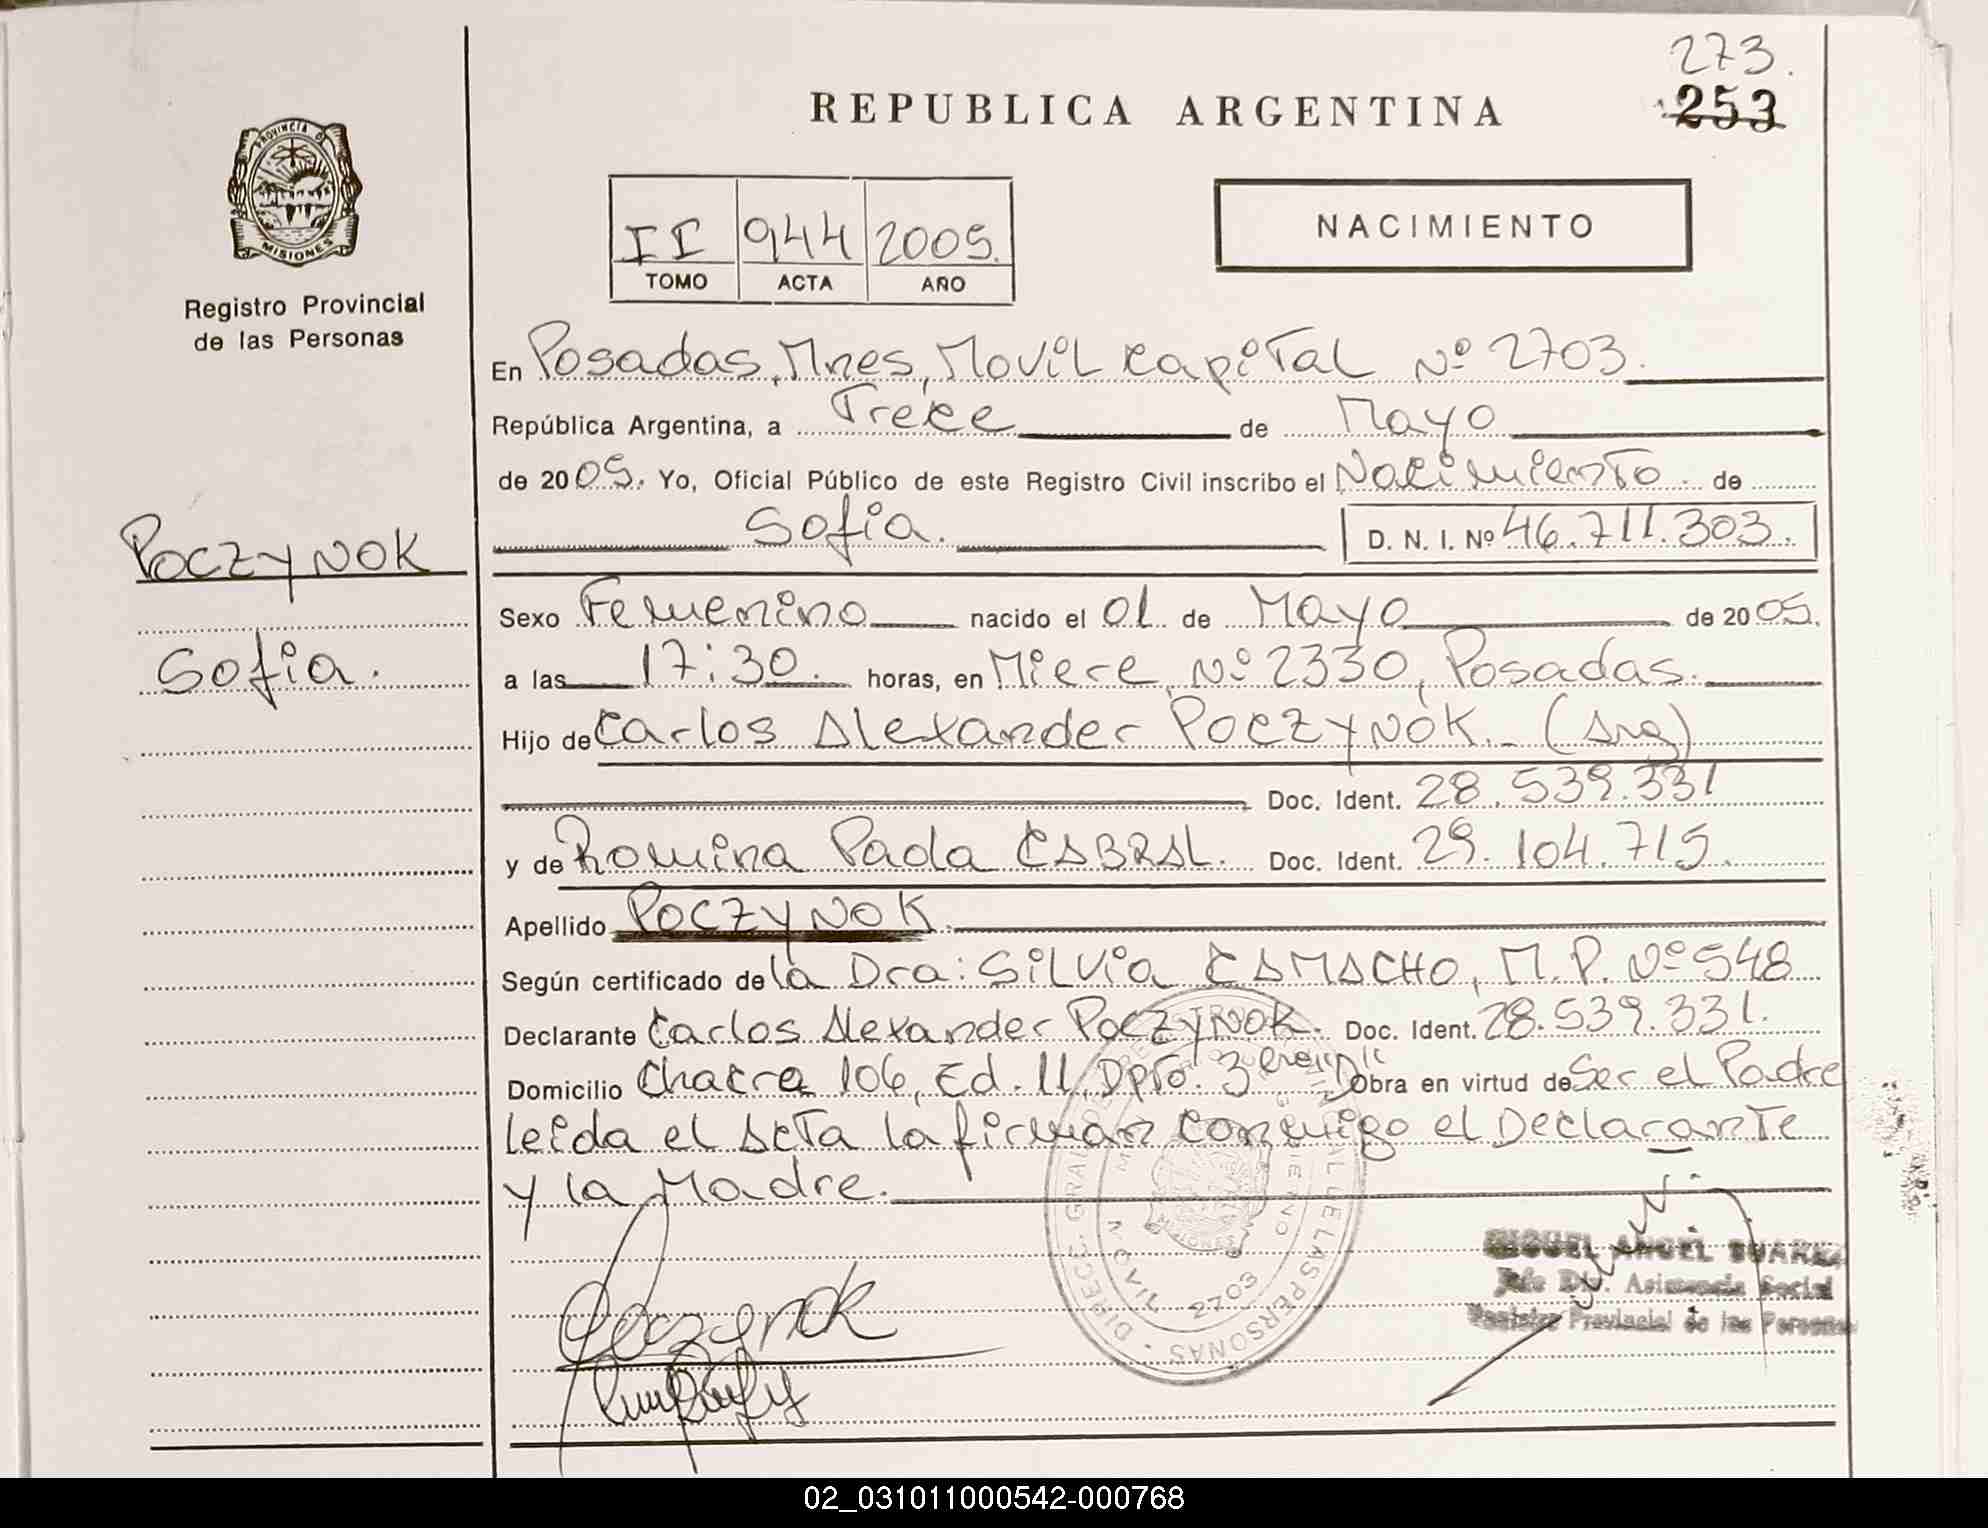 273.
253
REPUBLICA ARGENTINA
PROVINCIA DE
MISIONES
Registro Provincial
de las Personas
II 944 2005.
TOMO ACTA AÑO
NACIMIENTO
En Posadas, Mnes, Movil Capital Nº 2703.
República Argentina, a Trece de Mayo
de 2005. Yo, Oficial Público de este Registro Civil inscribo el Nacimiento de
Sofia. D. N. I. Nº 46.711.303.
POCZYNOK
Sofia.
Sexo Femenino nacido el 01 de Mayo de 2005.
a las 17:30. horas, en Nº 2330, Posadas.
Hijo de Carlos Alexander POCZYNOK.- (Arg)
Doc. Ident. 28.539.331
y de Romina Paola CABRAL. Doc. Ident. 29.104.715.
Apellido POCZYNOK.
Según certificado de la Dra: Silvia CAMACHO, M.P. Nº 548
Declarante Carlos Alexander POCZYNOK. Doc. Ident. 28.539.331.
Domicilio Chacra 106, Ed. 11, Dpto. 3 Obra en virtud de Ser el Padre
leida el Acta la firman conmigo el Declarante
y la Madre.
DIRECC. GRAL. DE LAS PERSONAS
MOVIL 2703
MISIONES
Poczynok
MIGUEL ANGEL SUAREZ
Jefe Div. Asistencia Social
Registro Provincial de las Personas
02_031011000542-000768